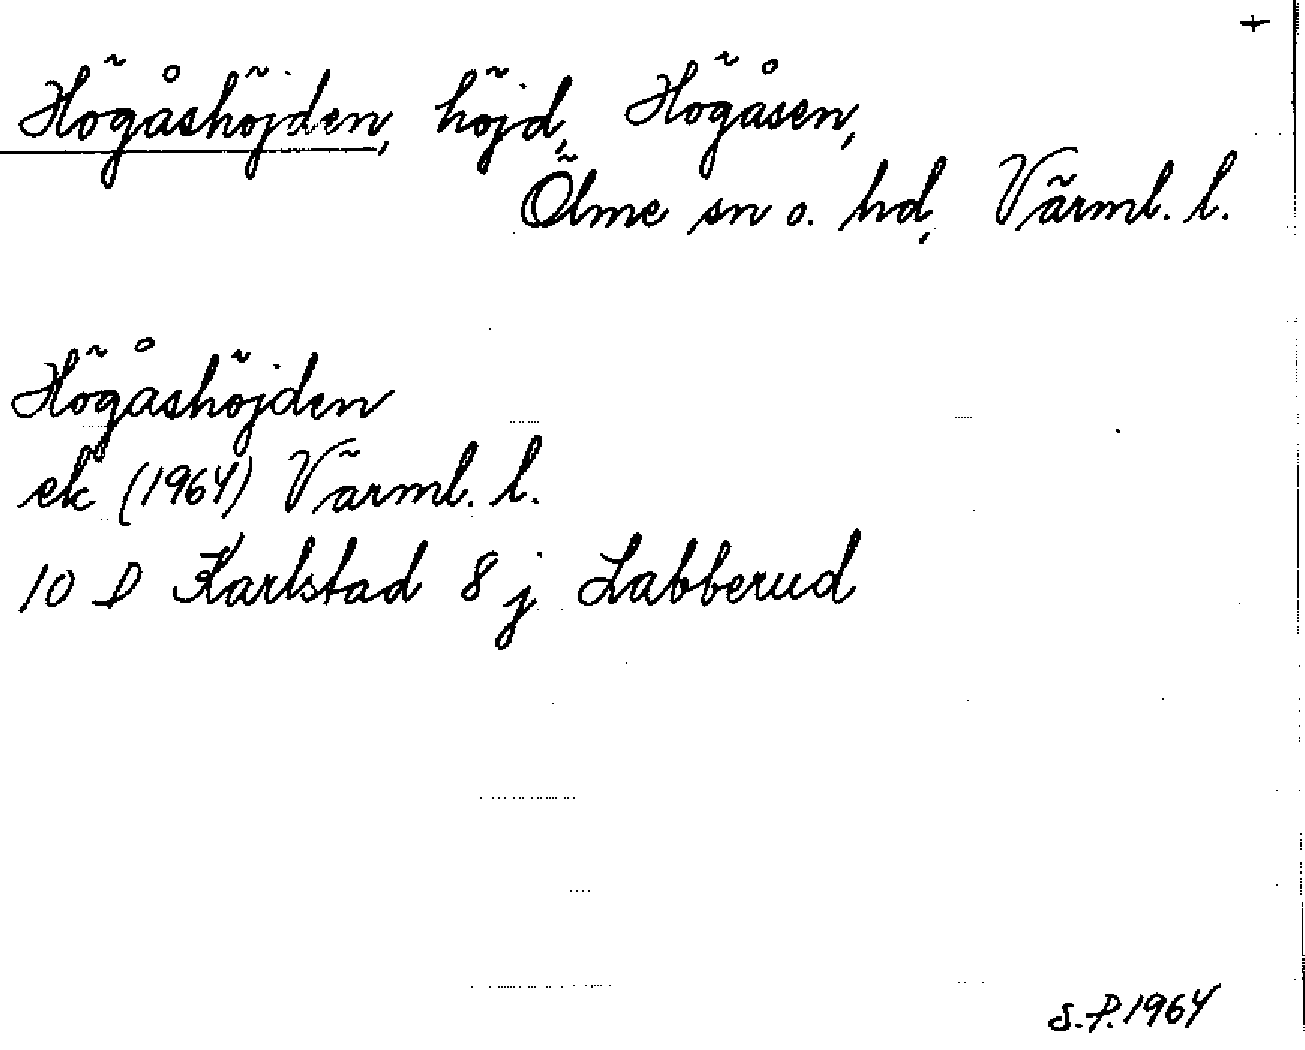 +
Högåshöjden, höjd, Högåsen,
Ölme sn o. hd, Värml. l.
Högåshöjden
ek (1964) Värml. l.
10 D Karlstad 8 j Labberud
S.P. 1964